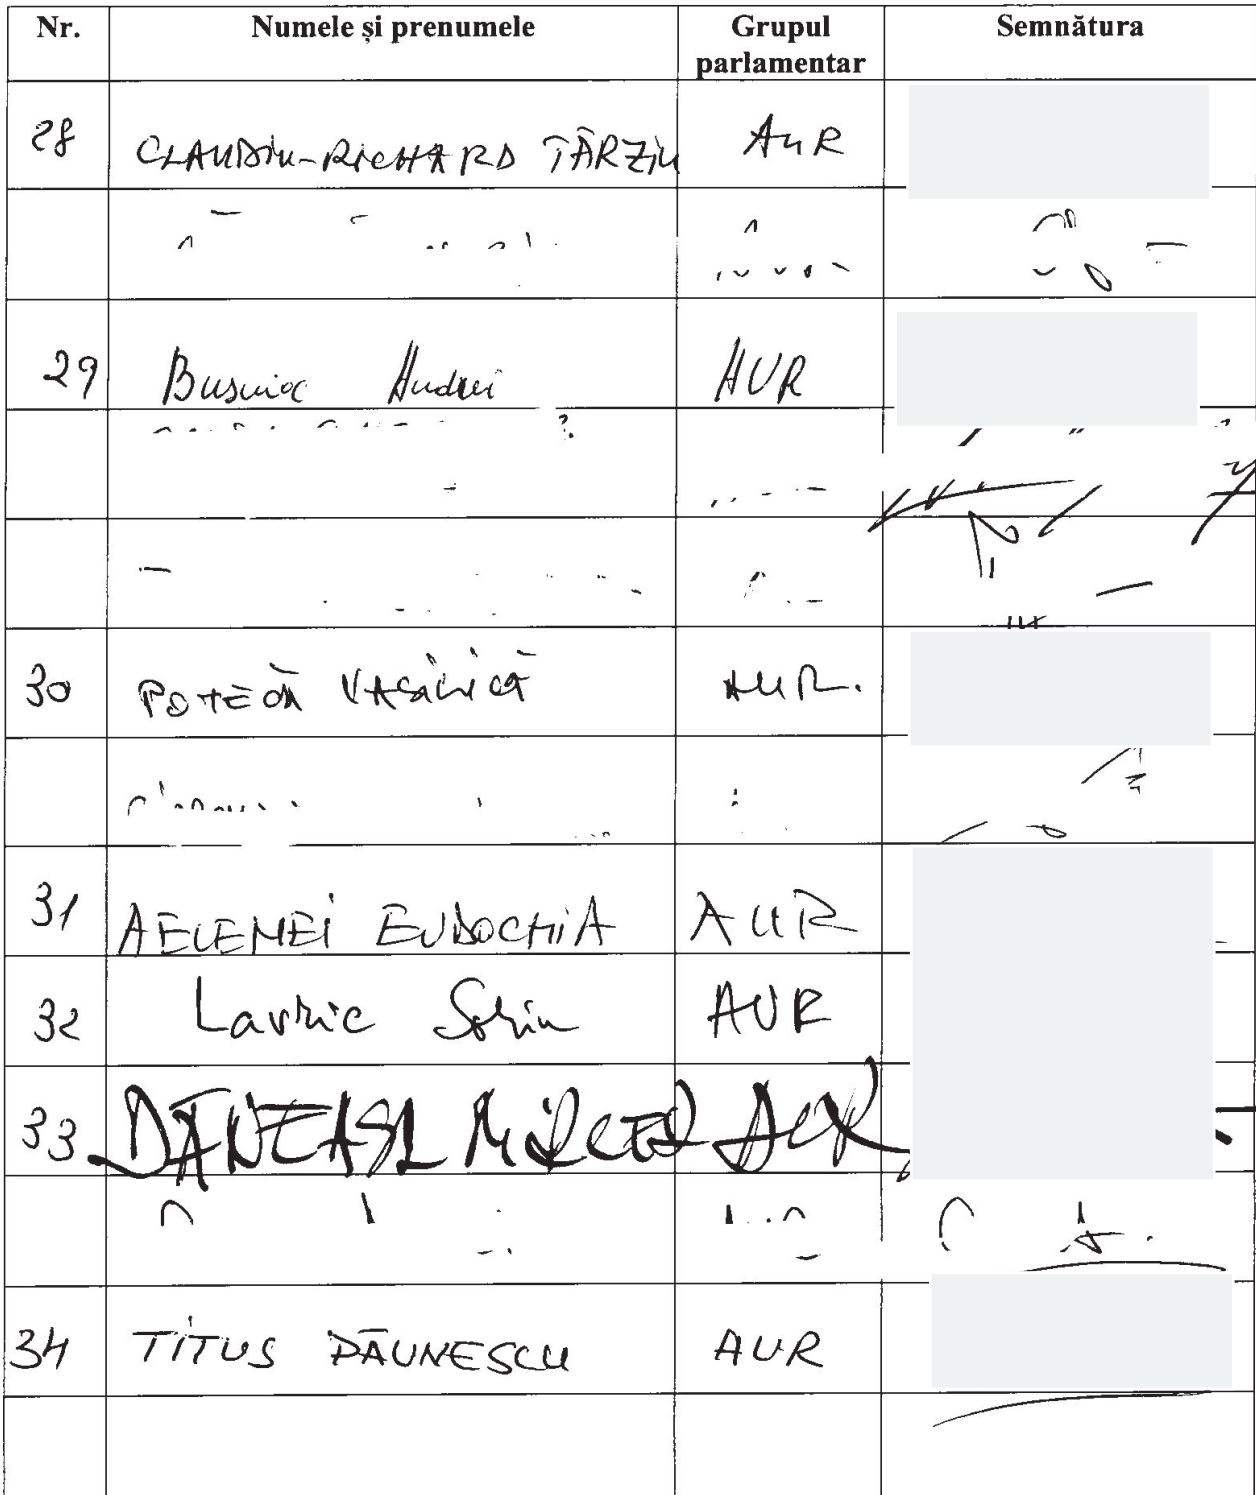 Nr. Numele și prenumele Grupul parlamentar Semnătura
28 CLAUDIU-RICHARD TÂRZIU AUR
29 Busuioc Andrei AUR
30 POTECĂ VASILICĂ AUR.
31 AELENEI EUDOCHIA AUR
32 Lavric Sorin AUR
33 MIRCEA AUR
34 TITUS PĂUNESCU AUR